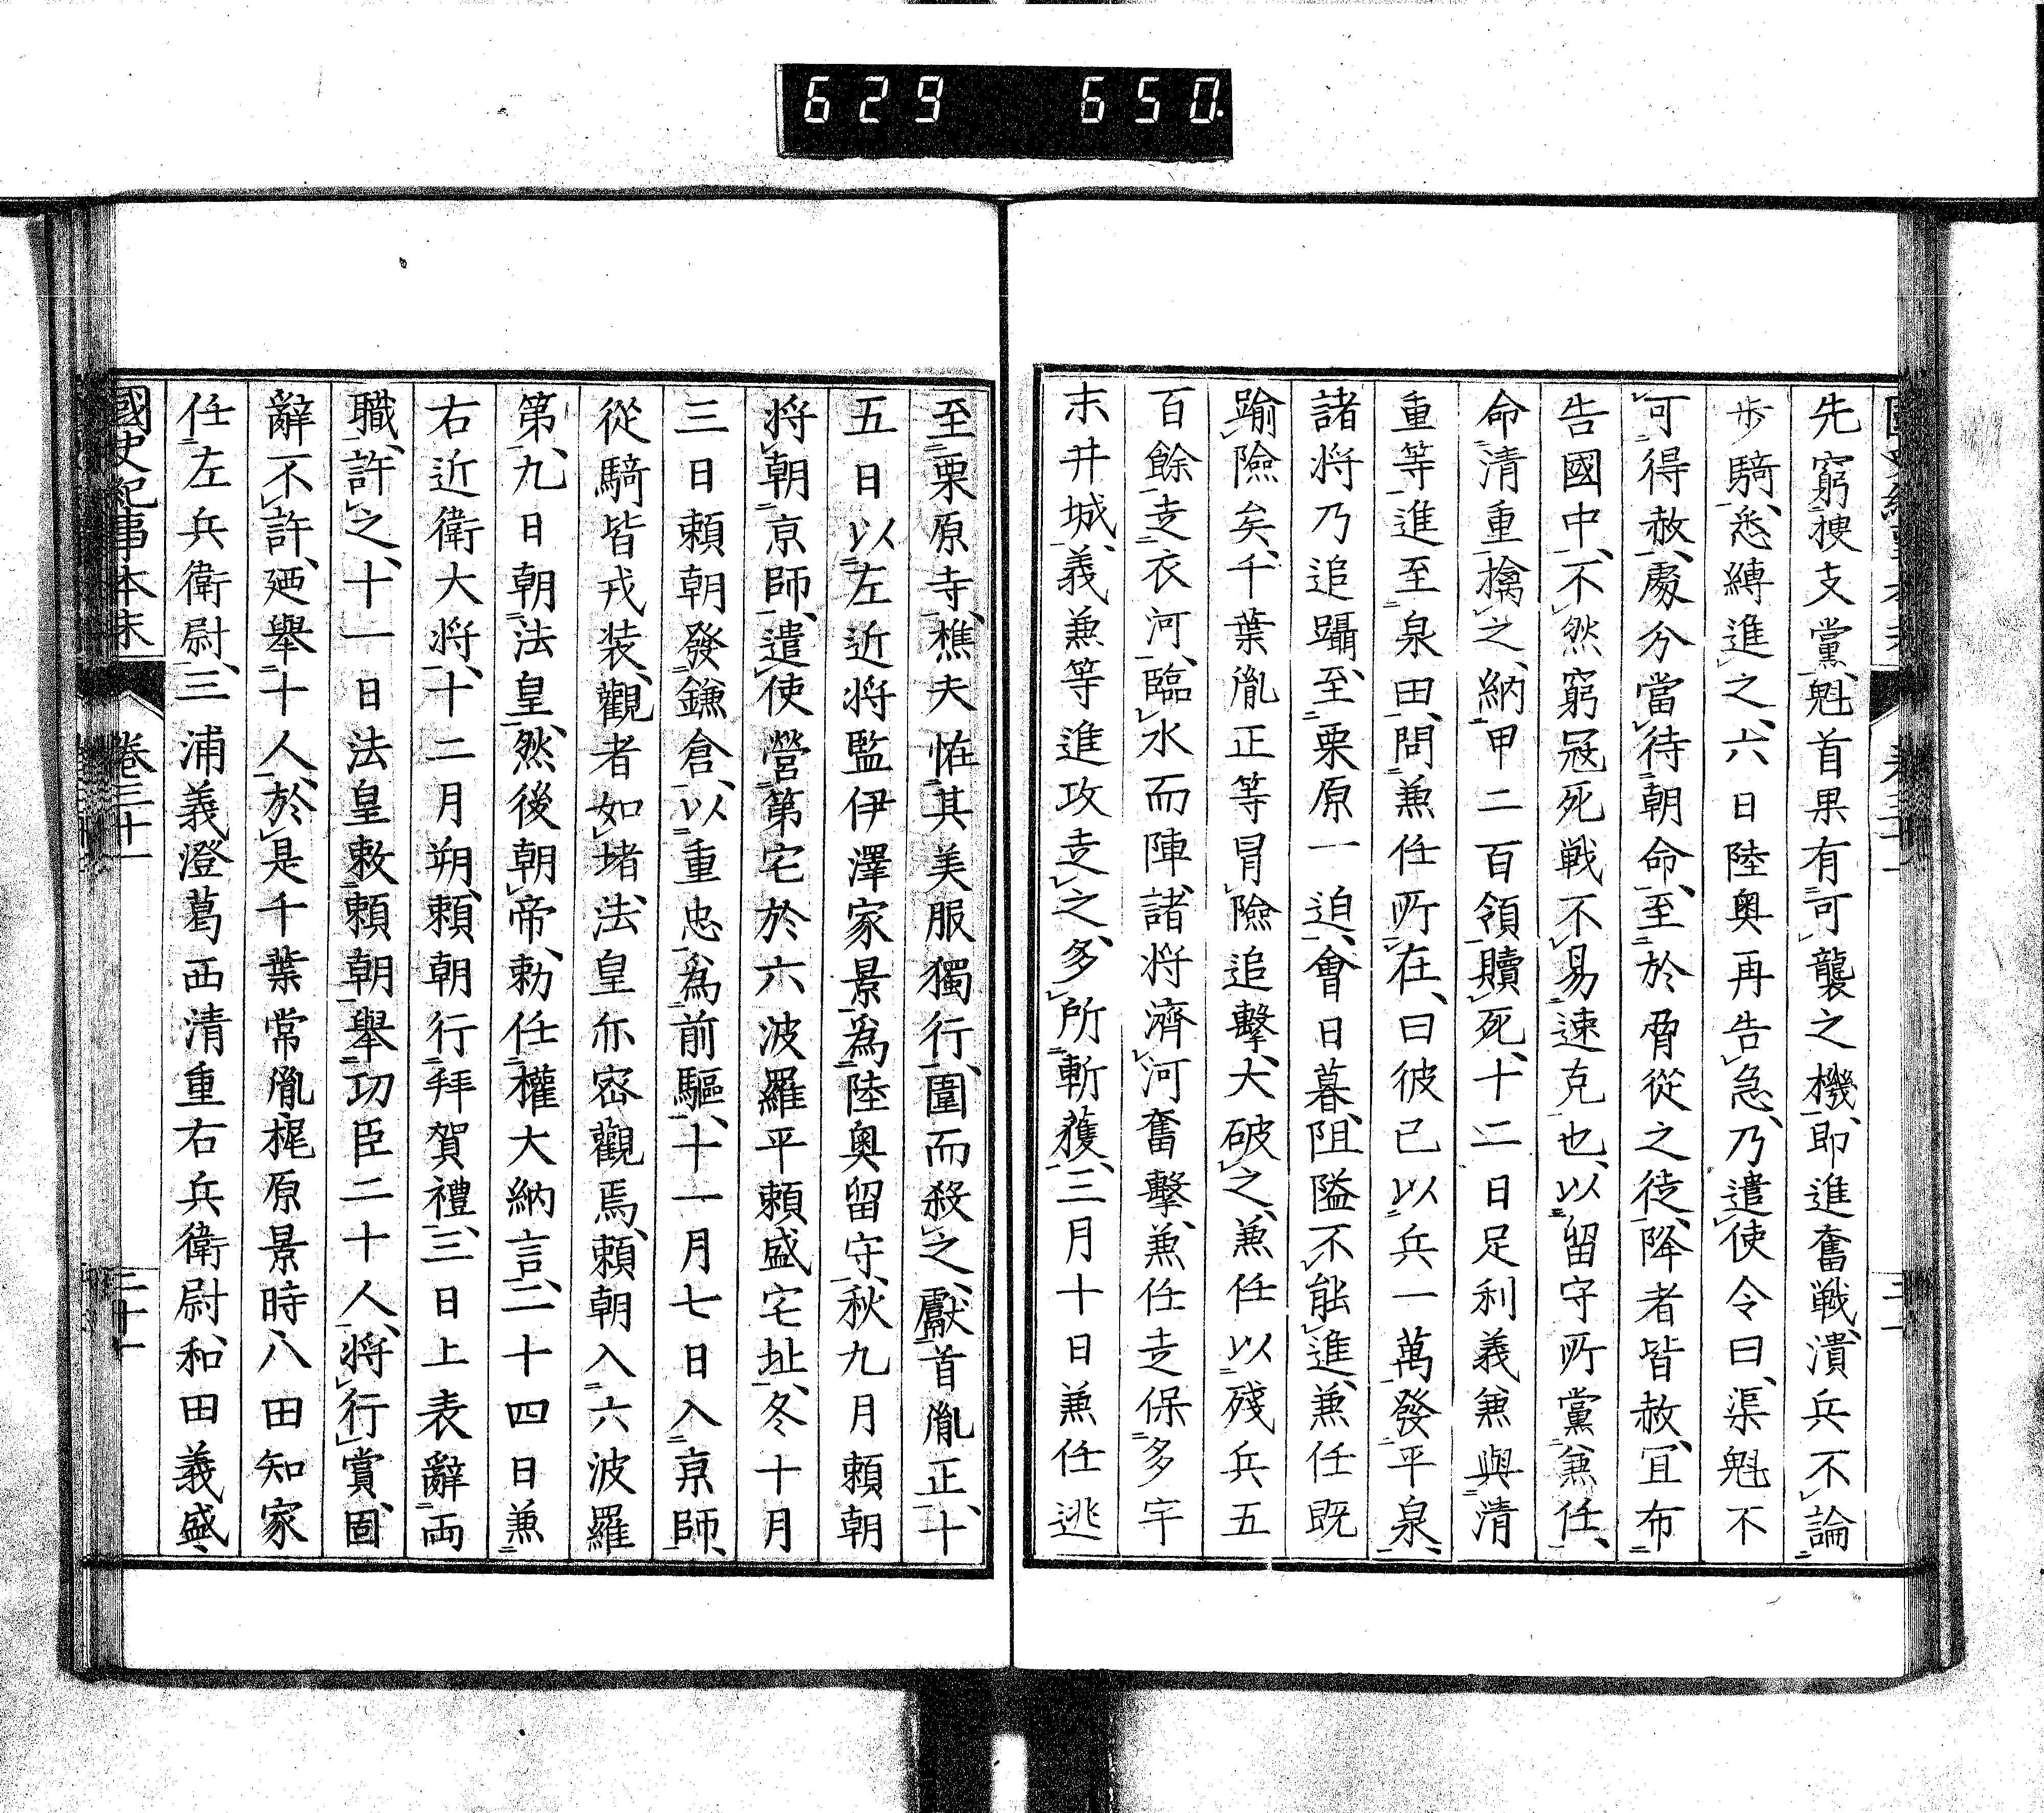 629 650
先窮捜支黨、魁首果有可襲之機、即進奮戦、潰兵不論
歩騎、悉縛進之、六日陸奥再告急、乃遣使令曰、渠魁不
可得赦、處分當待朝命、至於脅從之徒、降者皆赦、宜布
告國中、不然窮冦死戦不易速克也、以留守所黨兼任、
命清重擒之、納甲二百領贖死、十二日足利義兼與清
重等進至泉田、問兼任所在、曰彼已以兵一萬發平泉、
諸将乃追躡、至栗原一迫、會日暮、阻隘不能進、兼任既
踰險矣、千葉胤正等冒險追擊、大破之、兼任以殘兵五
百餘走衣河、臨水而陣、諸将濟河奮擊、兼任走保多宇
末井城、義兼等進攻走之、多所斬獲、三月十日兼任逃
至栗原寺、樵夫恠其美服獨行、圍而殺之、獻首胤正、十
五日以左近将監伊澤家景為陸奥留守、秋九月頼朝
将朝京師、遣使營第宅於六波羅平頼盛宅址、冬十月
三日頼朝發鎌倉、以重忠為前驅、十一月七日入京師、
從騎皆戎装、觀者如堵、法皇亦密觀焉、頼朝入六波羅
第、九日朝法皇、然後朝帝、勅任權大納言、二十四日兼
右近衛大将、十二月朔、頼朝行拜賀禮、三日上表辭両
職、許之、十一日法皇敕頼朝舉功臣二十人、将行賞、固
辭不許、廼舉十人、於是千葉常胤梶原景時八田知家
任左兵衛尉、三浦義澄葛西清重右兵衛尉、和田義盛
國史紀事本末 卷三十一 二十一